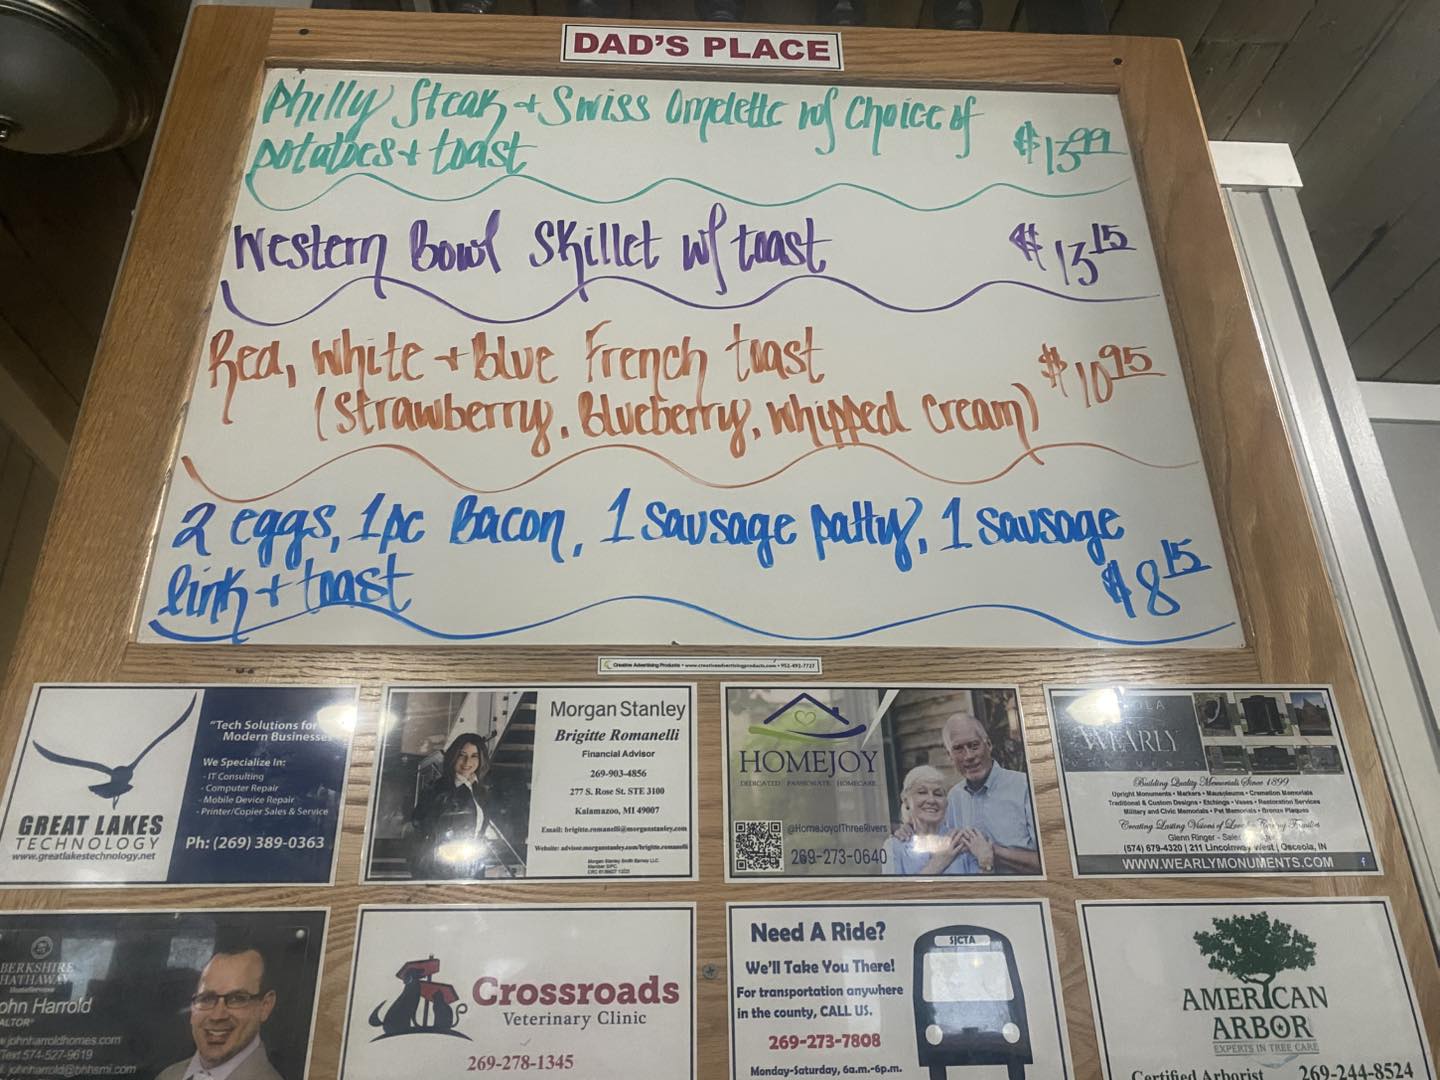 DAD'S PLACE
Philly Steak + Swiss Omelette w/ choice of
potatoes + toast $13.99
Western Bowl Skillet w/ toast $13.15
Red, White + Blue French toast $10.95
(Strawberry, Blueberry, whipped cream)
2 eggs, 1pc Bacon, 1 sausage patty, 1 sausage
link + toast $8.15
Creative Advertising Products • www.creativeadvertisingproducts.com • 952-492-7727
GREAT LAKES
TECHNOLOGY
www.greatlakestechnology.net
"Tech Solutions for
Modern Businesses
We Specialize In:
- IT Consulting
- Computer Repair
- Mobile Device Repair
- Printer/Copier Sales & Service
Ph: (269) 389-0363
Morgan Stanley
Brigitte Romanelli
Financial Advisor
269-903-4856
277 S. Rose St. STE 3100
Kalamazoo, MI 49007
Email: brigitte.romanelli@morganstanley.com
Website: advisor.morganstanley.com/brigitte.romanelli
Morgan Stanley Smith Barney LLC.
Member SIPC.
HOMEJOY
DEDICATED PASSIONATE HOMECARE
@HomeJoyofThreeRivers
269-273-0640
WEARLY
MONUMENTS
Building Quality Memorials Since 1899
Upright Monuments • Markers • Mausoleums • Cremation Memorials
Traditional & Custom Designs • Etchings • Vases • Restoration Services
Military and Civic Memorials • Pet Memorials • Bronze Plaques
Creating Lasting Visions of Love for Caring Families
Glenn Ringer - Sales
(574) 679-4320 | 211 Lincolnway West | Osceola, IN
WWW.WEARLYMONUMENTS.COM
BERKSHIRE
HATHAWAY
HomeServices
ohn Harrold
ALTOR®
johnharroldhomes.com
Text 574-527-9619
johnharrold@bhhsmi.com
Crossroads
Veterinary Clinic
269-278-1345
Need A Ride?
We'll Take You There!
For transportation anywhere
in the county, CALL US.
269-273-7808
Monday-Saturday, 6a.m.-6p.m.
SJCTA
AMERICAN
ARBOR
EXPERTS IN TREE CARE
Certified Arborist 269-244-8524